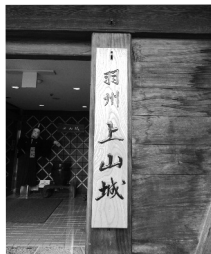 羽州上山城